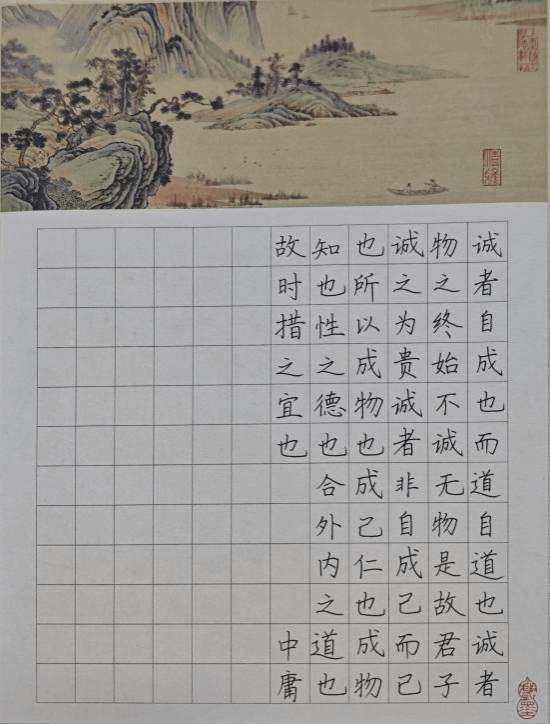 诚者自成也而道自道也诚者
物之终始不诚无物是故君子
诚之为贵诚者非自成己而已
也所以成物也成己仁也成物
知也性之德也合外内之道也
故时措之宜也
中庸